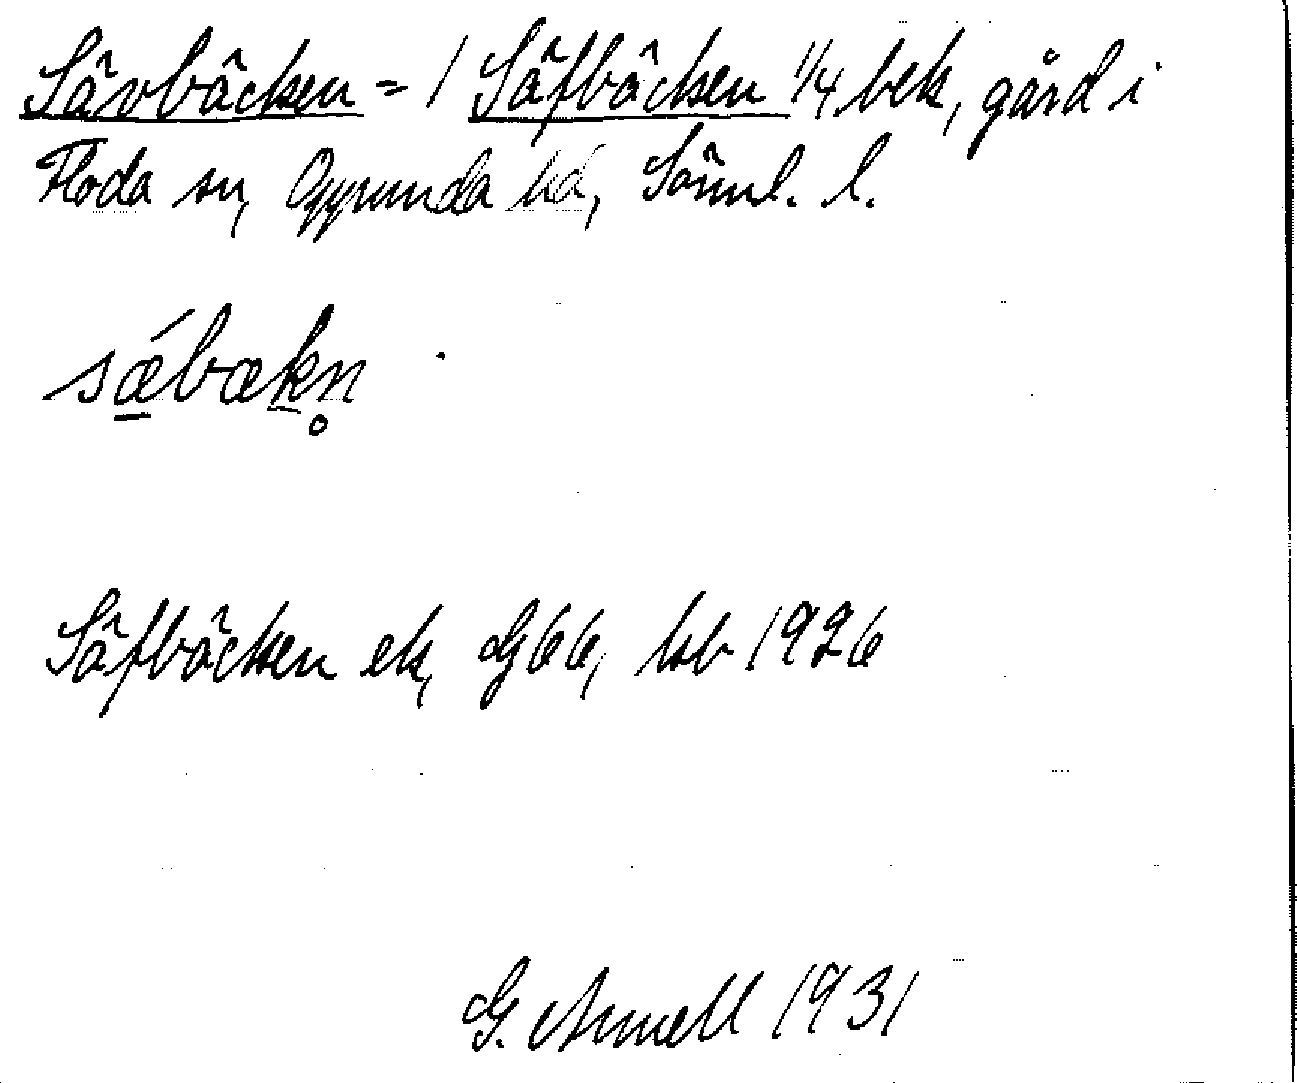 Sävbäcken = 1 Säfbäcken 1/4 bek, gård i
Floda sn, Oppunda hd, Söml. l.
sǽbækn̥
Säfbäcken ek, G66, ksb 1926
G. Annell 1931